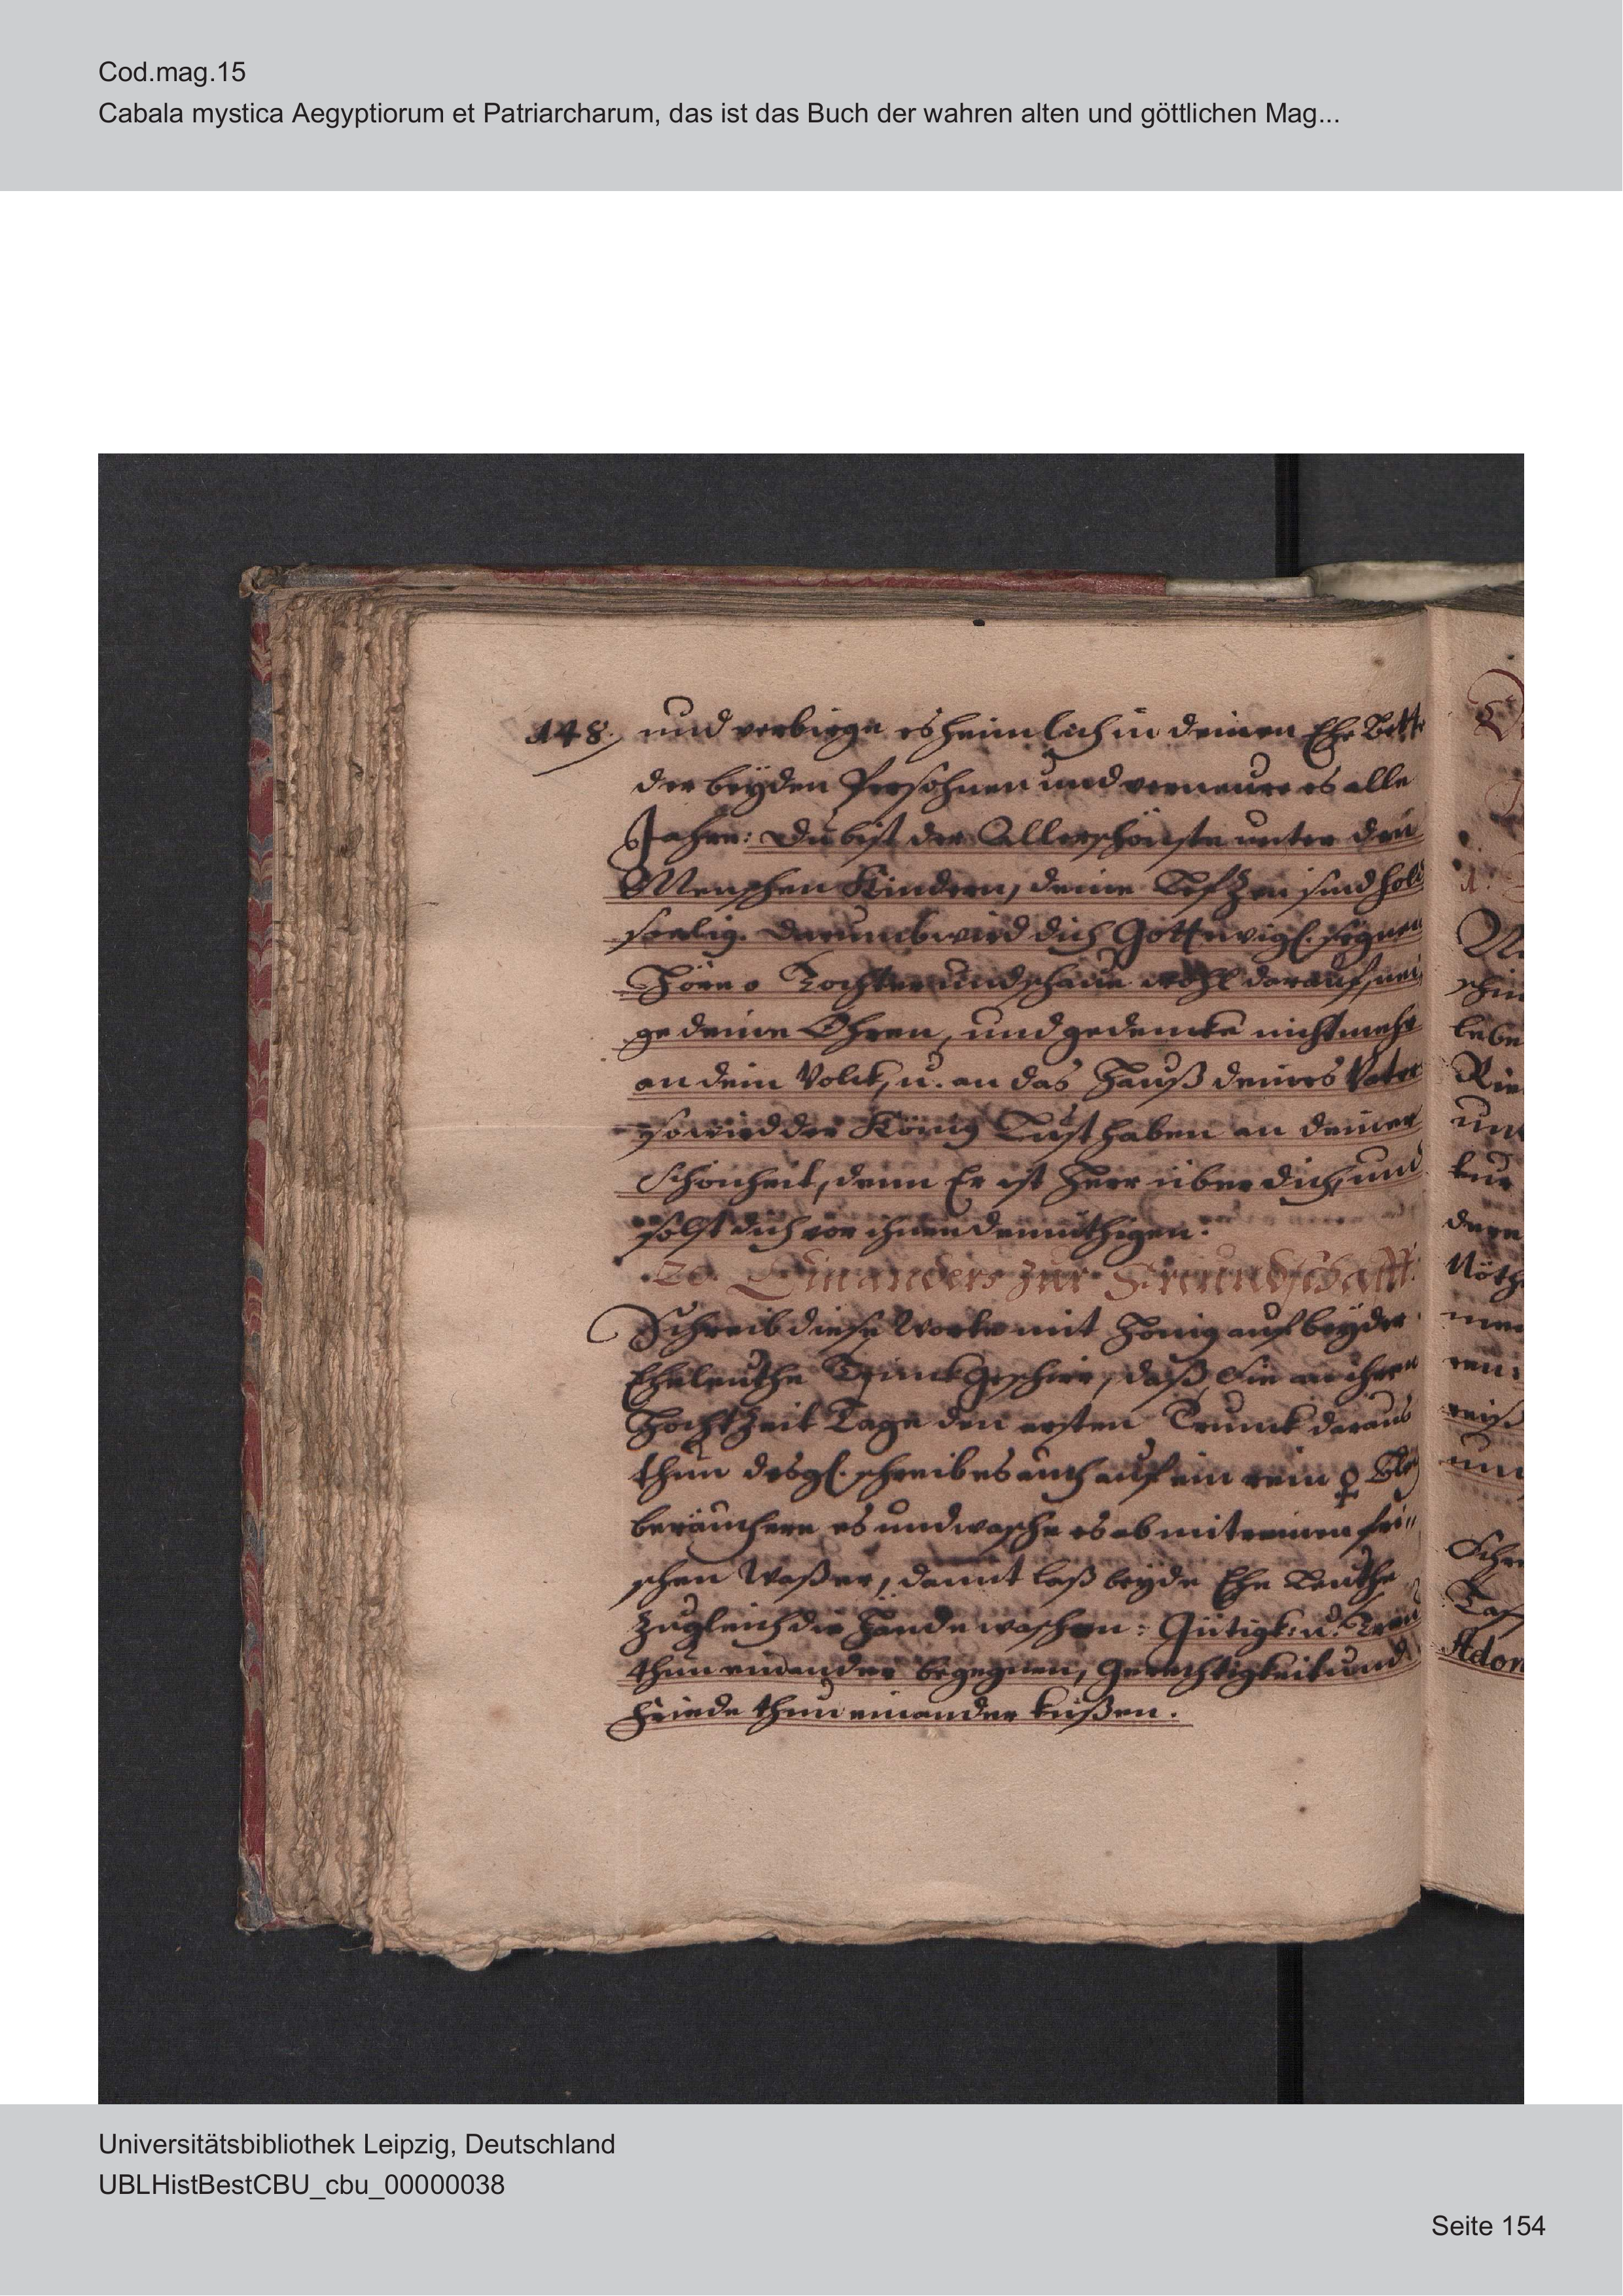 Cod.mag.15
Cabala mystica Aegyptiorum et Patriarcharum, das ist das Buch der wahren alten und göttlichen Mag...
148. und verbirge es heimlich in deinen Ehe Bette
der beyden Persohnen und verneure es alle
Jahre: du bist der Allerschönste unter den
Menschen Kindern, deine Lefzen sind hold
seelig. darumb wird dich Gott ewigl. segnen
Höre o Tochter und schaue wohl darauf, nei
ge deine Ohren, und gedencke nicht mehr
an dein Volck, u. an das Hauß deines Vater
so wird der König Lust haben an deiner
Schönheit, denn Er ist Herr über dich, und
solst dich vor ihnen demüthigen.
Ein anders zur Freundschafft.
Schreib diese Worte mit Honig auf beyder
Eheleuthe Trinck Geschirr, daß Sie an ihren
Hochtzeit Tage den ersten Trunck daraus
thun desgl. schreib es auch auf ein rein ♀ Ble
beräuchere es und wasche es ab mit reinen fri=
schen Waßer, damit laß beyde Ehe Leuthe
zugleich die Hände waschen: Gütigk: u. Treu
thun einander begegnen, Gerechtigkeit und
Friede thun einander küßen.
lebe
und
kur
Nöth
Schre
Taf
Adon
Universitätsbibliothek Leipzig, Deutschland
UBLHistBestCBU_cbu_00000038
Seite 154